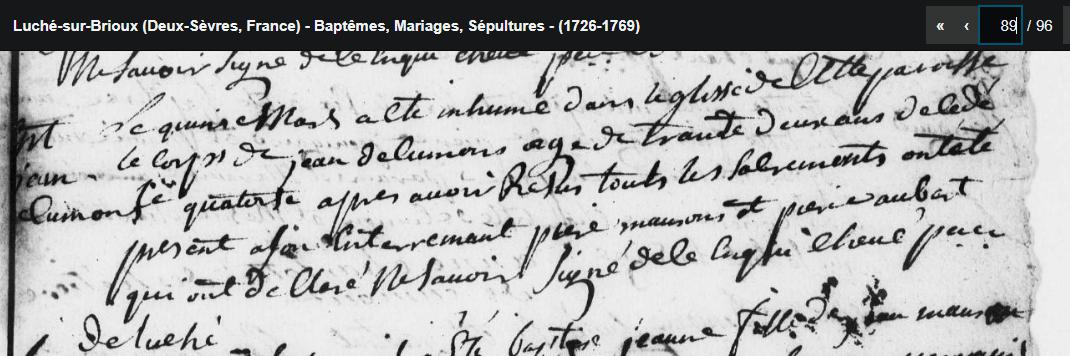 Luché-sur-Brioux (Deux-Sèvres, France) - Baptêmes, Mariages, Sépultures - (1726-1769)
« ‹ 89 / 96
Ne Savoir Signé de le
Le quinse Mars a ete inhumé dans leglisse de Cette paroisse
le corps de jean delumons age de trante deux ans deledé
jean
quatorse apres avoir Resus touts les Sacrements ont ete
present a son interremant piere mansons et piere aubart
qui ont de Claré Ne Savoir Signé de le
de luché
baptise jeanne fille de